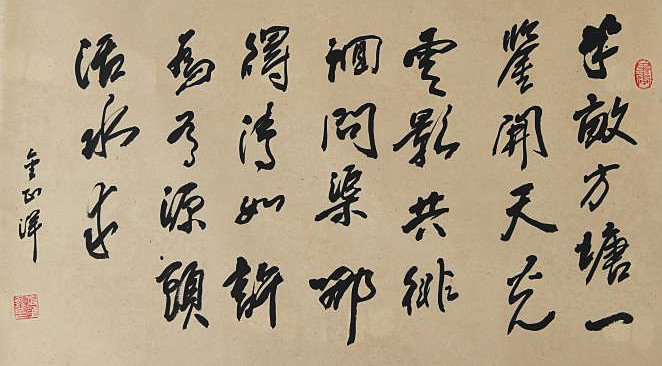 半畝方塘一
鑒開天光
雲影共徘
徊問渠哪
得清如許
為有源頭
活水来
金正